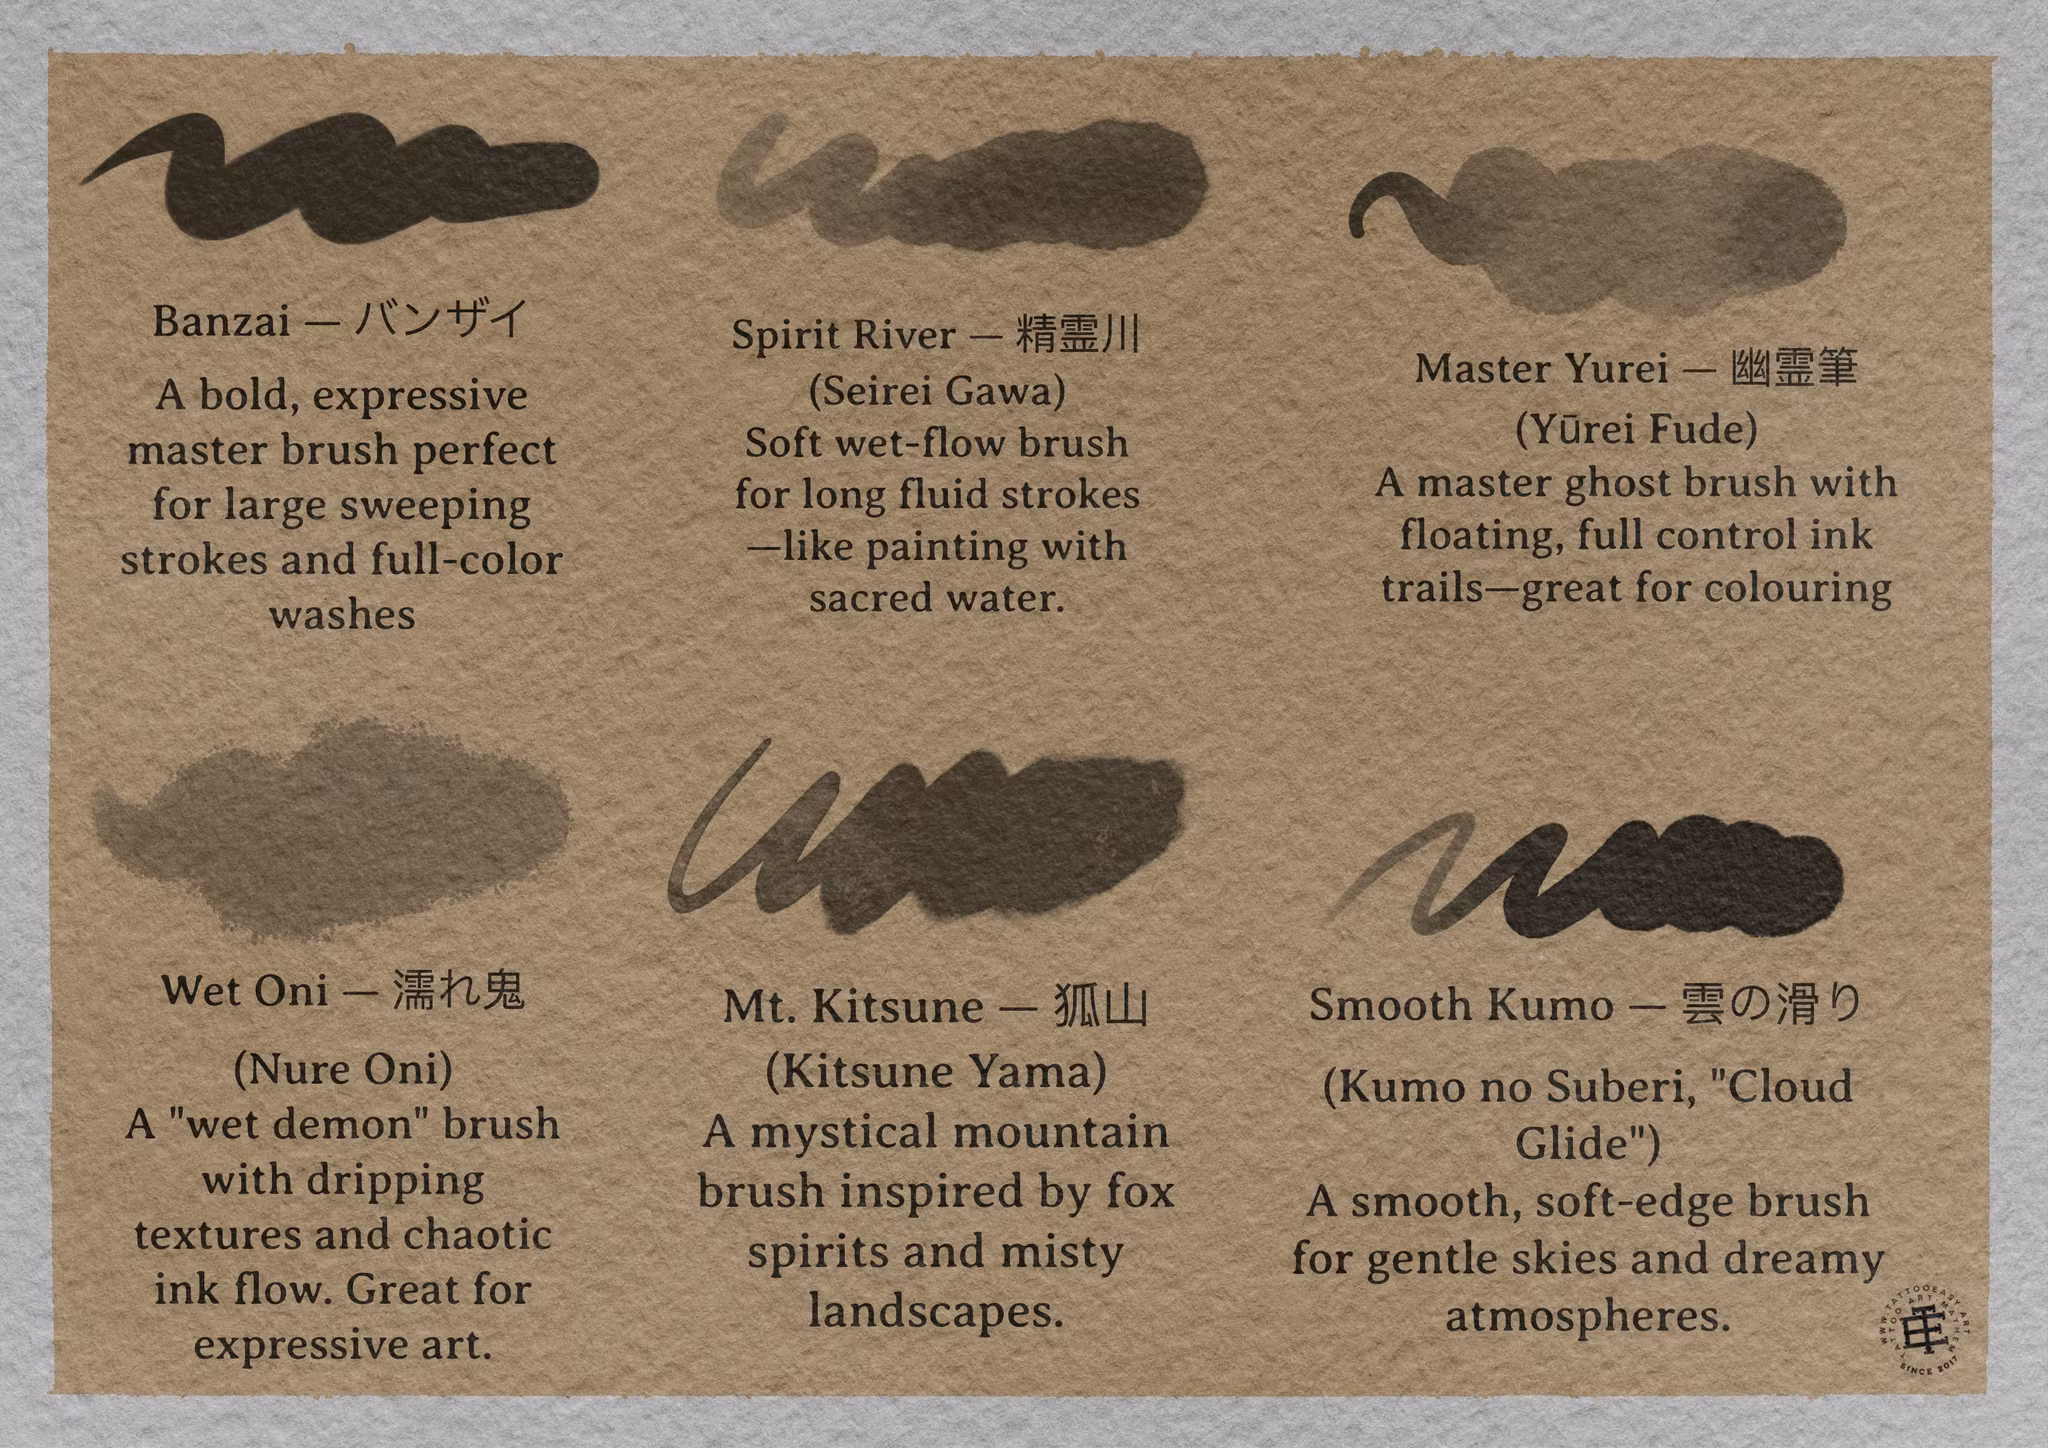 Banzai — バンザイ
A bold, expressive
master brush perfect
for large sweeping
strokes and full-color
washes
Spirit River — 精霊川
(Seirei Gawa)
Soft wet-flow brush
for long fluid strokes
—like painting with
sacred water.
Master Yurei — 幽霊筆
(Yūrei Fude)
A master ghost brush with
floating, full control ink
trails—great for colouring
Wet Oni — 濡れ鬼
(Nure Oni)
A "wet demon" brush
with dripping
textures and chaotic
ink flow. Great for
expressive art.
Mt. Kitsune — 狐山
(Kitsune Yama)
A mystical mountain
brush inspired by fox
spirits and misty
landscapes.
Smooth Kumo — 雲の滑り
(Kumo no Suberi, "Cloud
Glide")
A smooth, soft-edge brush
for gentle skies and dreamy
atmospheres.
WWW.TATTOOEASY.ART
TATTOO ART MAYHEM
SINCE 2017